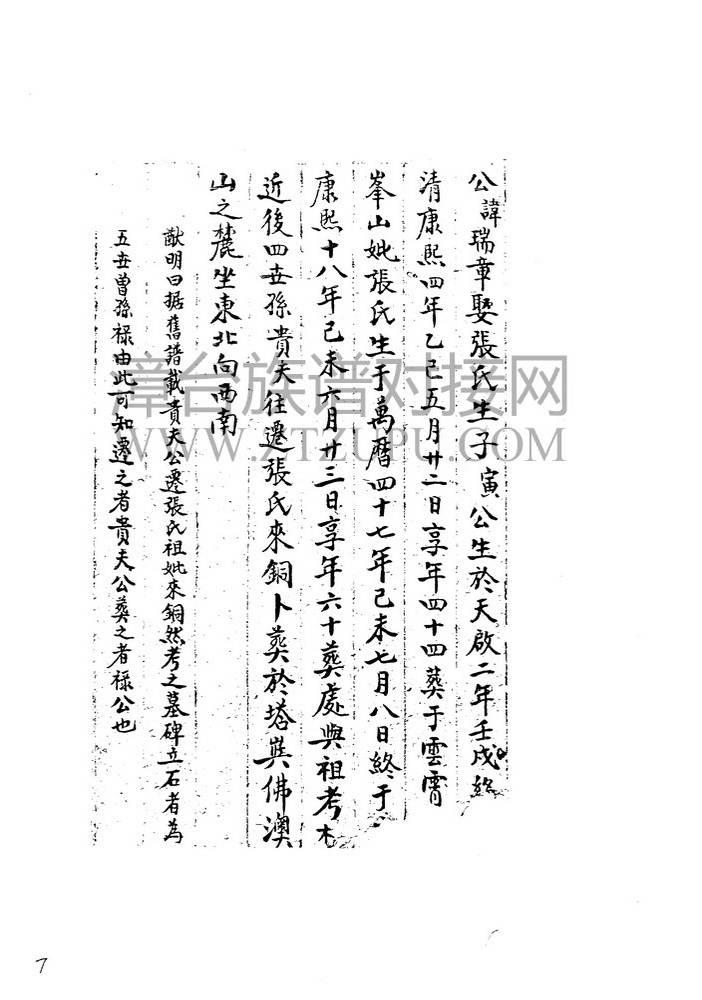 公諱瑞章娶張氏生子寅公生於天啟二年壬戌終
清康熙四年乙巳五月廿二日享年四十四葬于雲霄
峯山妣張氏生于萬曆四十七年己未七月八日終于
康熙十八年己未六月廿三日享年六十葬處與祖考
近後四世孫貴夫往遷張氏來銅卜葬於塔與佛澳
山之麓坐東北向西南
猷明曰据舊譜載貴夫公遷張氏祖妣來銅然考之墓碑立石者為
五世曾孫祿由此可知遷之者貴夫公葬之者祿公也
漳台族谱对接网
WWW.ZTZUPU.COM
7